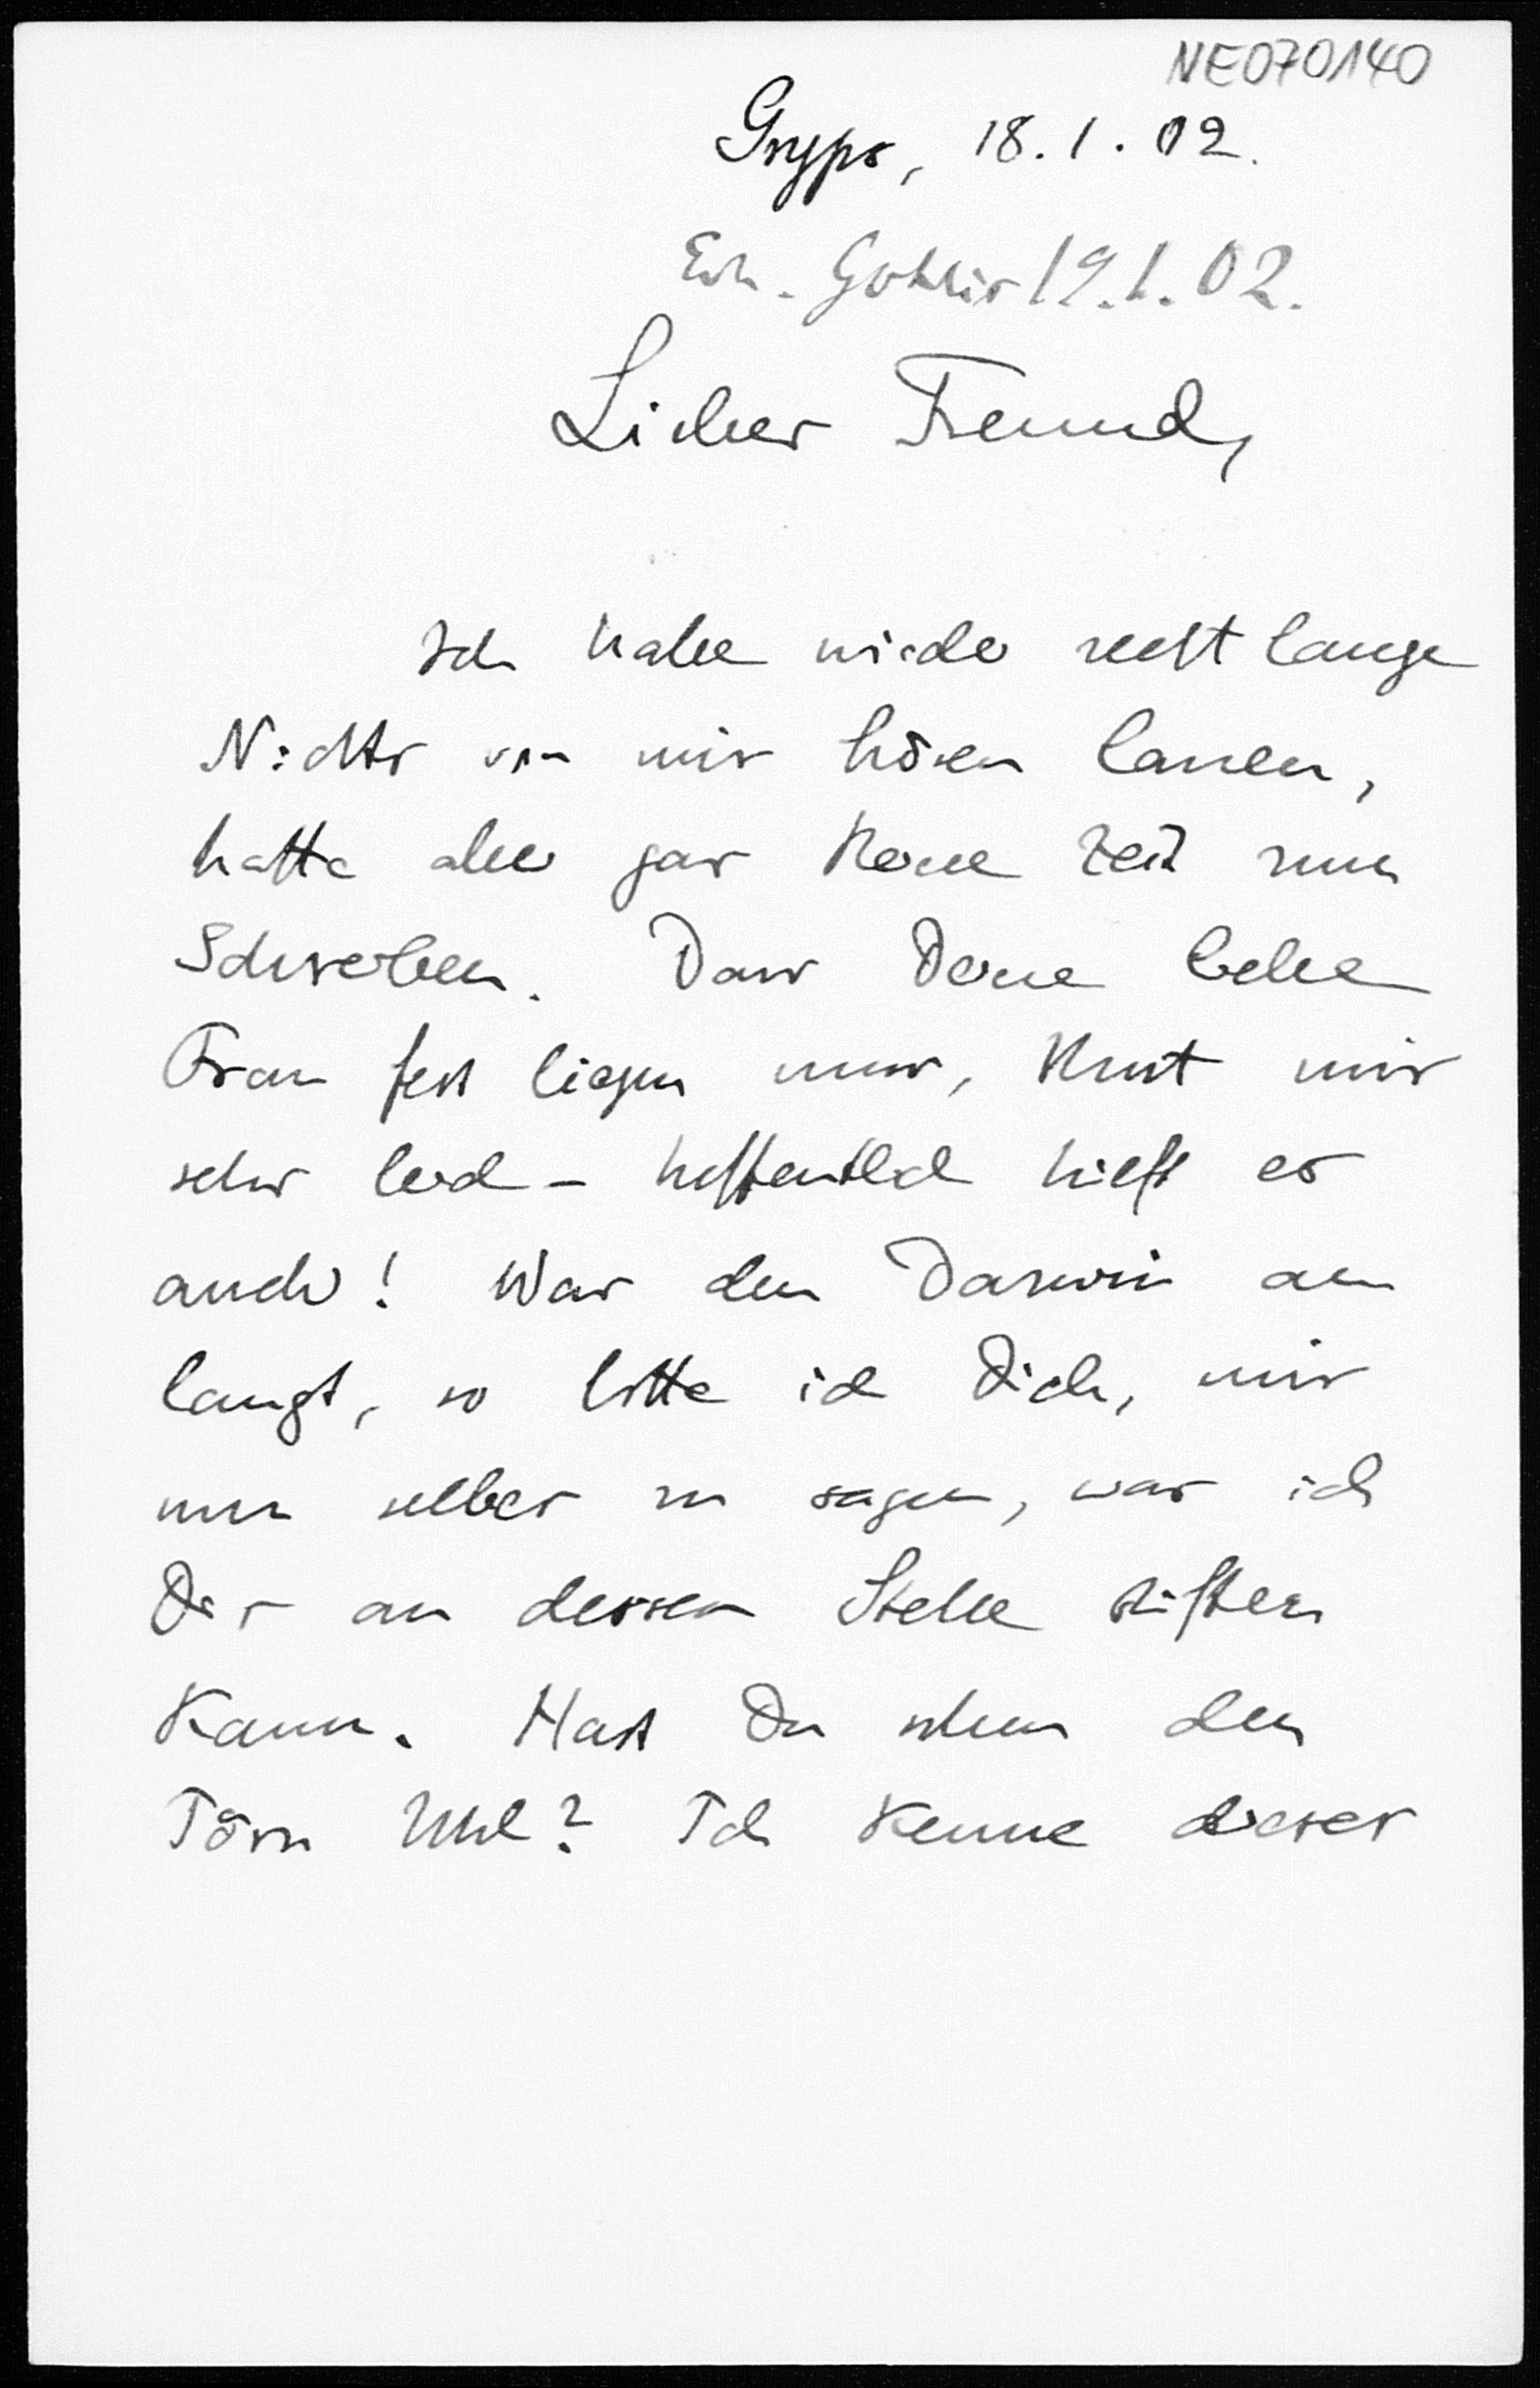 NE070140
Gryps, 18.1.02.
Erh. Gohlis 19.1.02.
Lieber Freund,
Ich habe wieder recht lange
Nichts von mir hören lassen,
hatte aber gar keine Zeit zum
Schreiben. Dass Deine liebe
Frau fest liegen muss, thut mir
sehr leid - hoffentlich hilft es
auch! Was den Darwin an
langt, so bitte ich Dich, mir
nun selber zu sagen, was ich
Dir an dessen Stelle stiften
kann. Hast Du schon den
Jörn Uhl? Ich kenne dieses